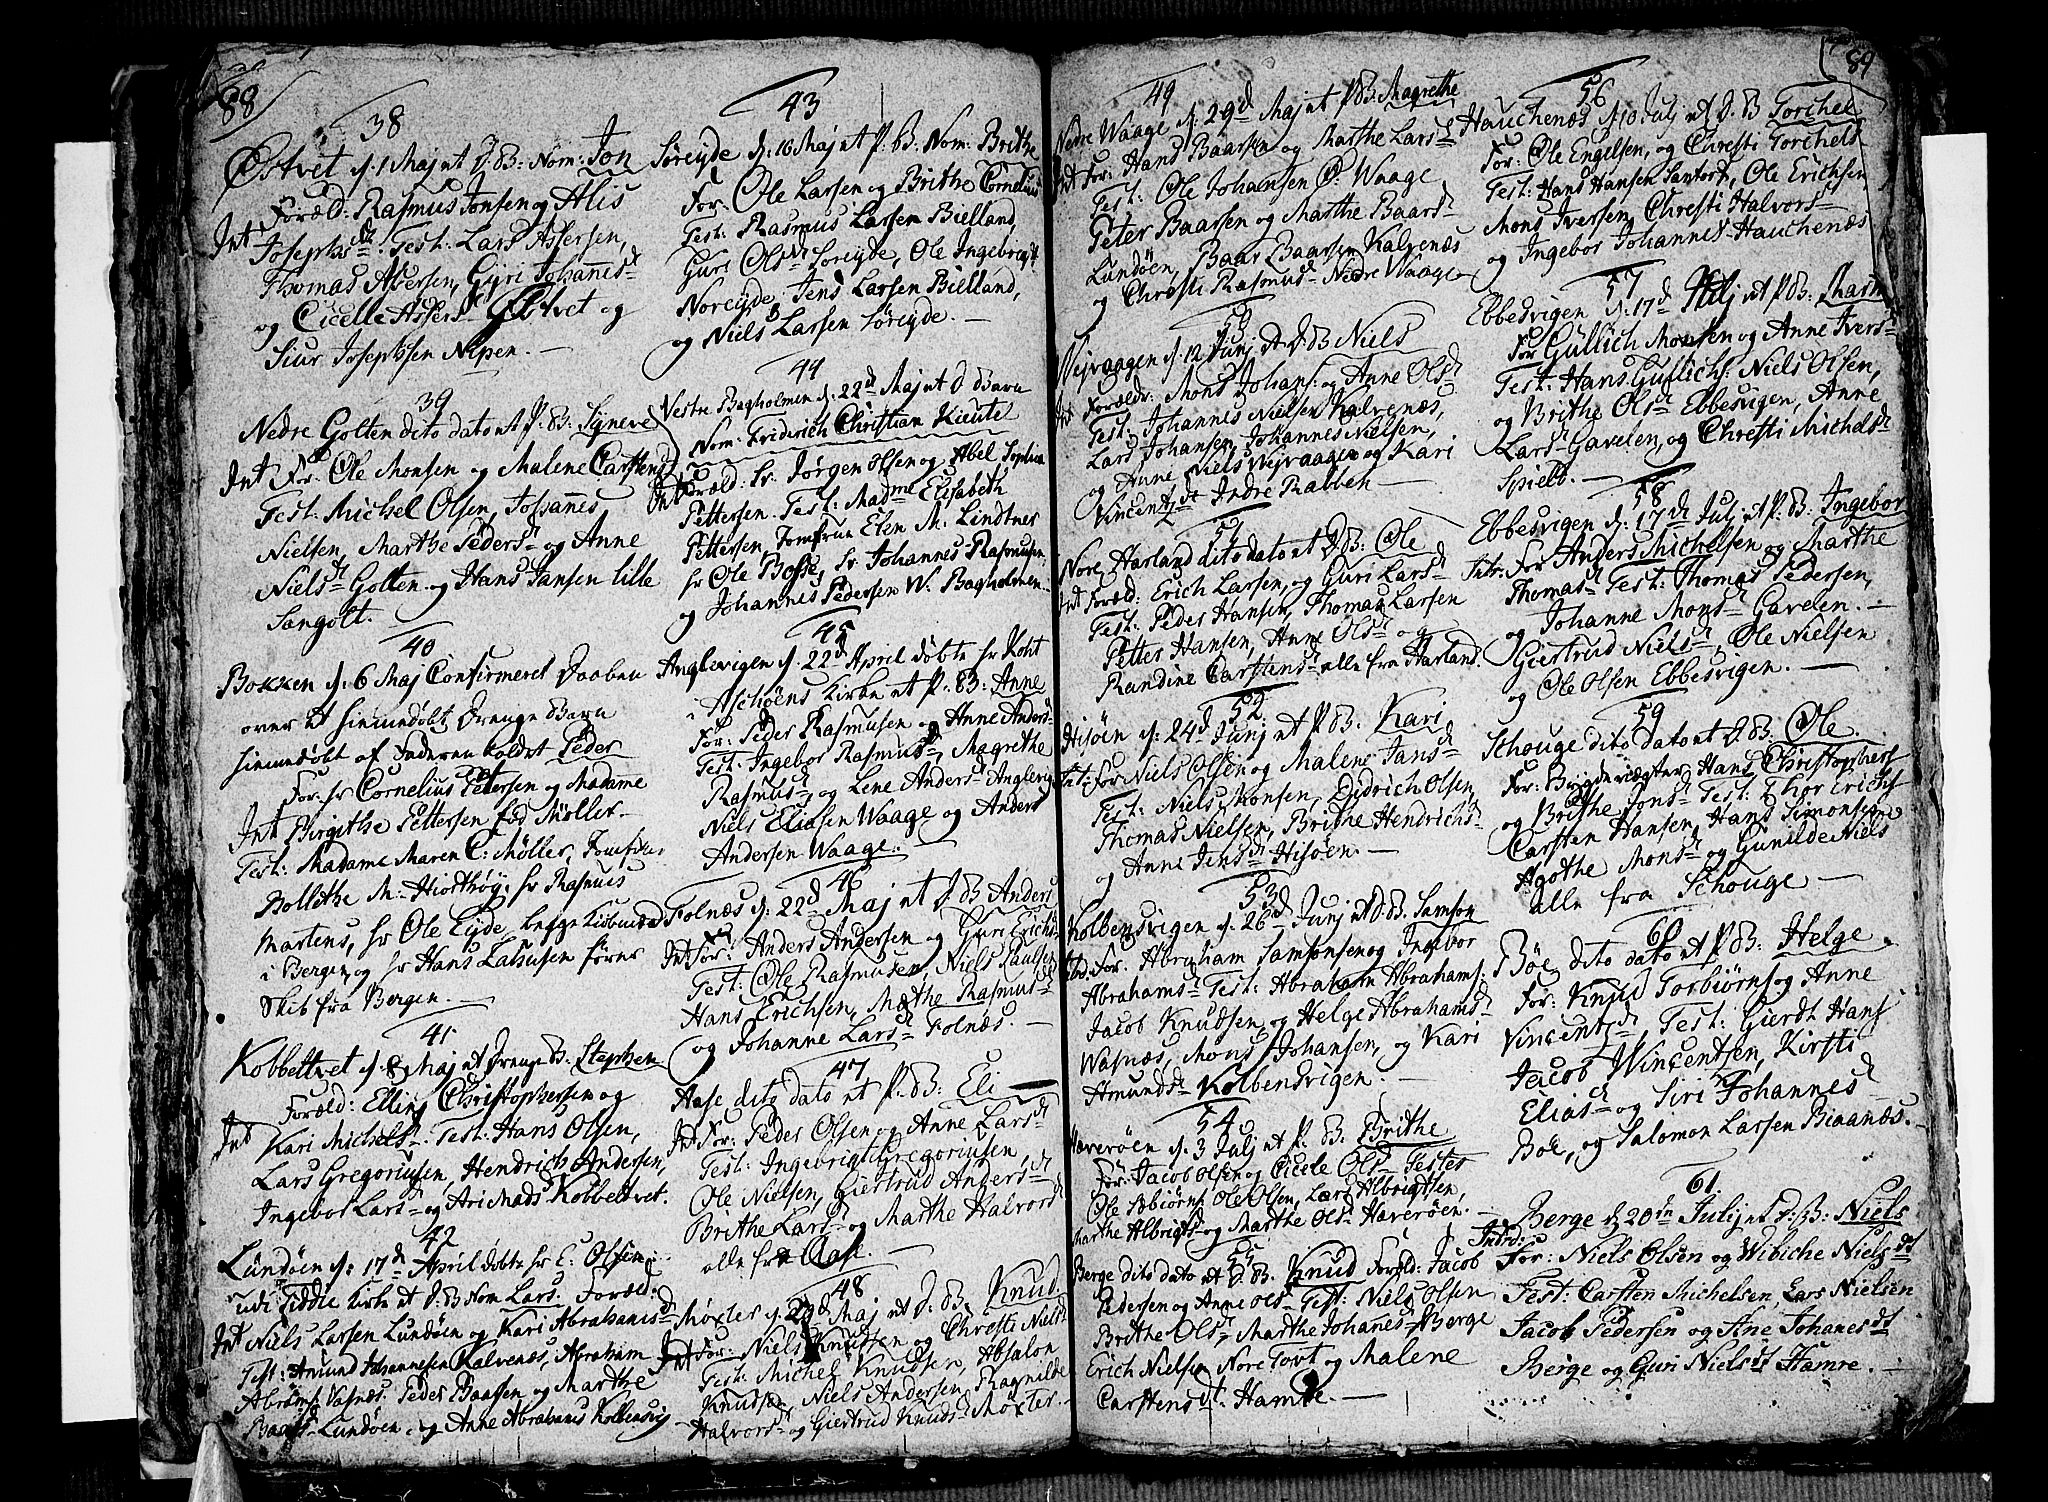 88
38
Østvet d: 1 Maj et D: B: Nom: Jon
Foræld: Rasmus Jonsen og Alis
Int Josephsdt Test: Lars Assersen,
Thomas Assersen, Gyri Johannesd
og Cicelle Assersd Østvet og
Siur Josephsen Nepen. —
39
Nedre Golten dito dato et P: B: Syneve
Int For: Ole Monsen og Malene Carstensd
Test: Michel Olsen, Johannes
Nielsen, Marthe Pedersd og Anne
Nielsdt Golten og Hans Jansen lille
Sangolt.
40
Bokken d: 6 Maj Confirmeret Daaben
over et hiemmedøbt Drenge Barn
hiemmedøbt af Faderen kaldet Peder
For: hr Cornelius Petersen og Madame
Int Birgithe Pettersen fød Møller.
Test: Madame Maren C: Møller, Jomfrue
Bollethe M: Hiorthøy, hr Rasmus
Martens, hr Ole Eyde, begge Kiøbmænd
i Bergen, og hr Hans fører
Skib fra Bergen. —
41
Kobbeltvet d: 8 Maj et Drenge B: Stephen
Foræld: Elling Christophersen og
Int Kari Michelsdt. Test: Hans Olsen,
Lars Gregoriusen, Hendrich Andersen,
Ingebor Larsd og Arichads Kobbeltvet.
42
Lundøen d: 17d April døbte hr E: Olsen
udi Kirke et D: B Nom Lars. Foræld:
Int Niels Larsen Lundøen og Kari Abrahamsd
Test: Amund Johannesen Kalvenæs, Abraham
Vasnæs, Peder Baarsen og Marthe
Baarsd Lundøen, og Anne Abrahams Kolbensvig
43
Søreyde d: 16 Maj et P: B: Nom: Brithe
For: Ole Larsen og Brithe Corneliusd
Test: Rasmus Larsen Bielland,
Guri Olsdt Søreyde, Ole Ingebrigt
Noreyde, Jens Larsen Bielland,
og Niels Larsen Søreyde. —
44
Vestre Bagholmen d: 22d Maj et D Barn
Nom: Friderich Christian Kieute
Int Foræld: Sr. Jørgen Olsen og Abel Sophia
Pettersen. Test: Madme Elisabeth
Pettersen, Jomfrue Elen M: Lindtner
hr Ole Bosse, hr Johannes Rasmusen
og Johannes Pedersen W: Bagholmen.
45
Anglevigen d: 22d April døbte hr Koht
i Aschøens Kirke et P: B: Anne
For: Peder Rasmusen og Anne Andersd
Test: Ingebor Rasmusd, Magrethe
Rasmusd, og Lene Andersd Anglevig
Niels Eliasen Waage og Anders
Andersen Waage.
46
Folnæs d: 22d Maj et D: B Anders
Int For: Anders Andersen og Guri Erichs
Test: Ole Rasmusen, Niels Paulsen
Hans Erichsen, Marthe Rasmusd
og Johanne Larsd Folnæs. —
47
Aase dito dato et P: B: Eli —
Int For: Peder Olsen og Anne Larsdt
Test: Ingebrigt Gregoriusen,
Ole Nielsen, Giertrud Andersdt
Brithe Larsd og Marthe Halvorsd
alle fra Aase. —
48
Møxter d: 29d Maj et D: B: Knud
Int For: Niels Knudsen og Christi Nielsd
Test: Michel Knudsen, Absalon
Knudsen, Niels Andersen, Ragnilde
Halvorsd og Giertrud Knudsd Møxter.
49
Nedre Waage d: 29d Maj et P: B: Magrethe
Int For: Hans Baarsen og Marthe Larsd
Test: Ole Johansen Ø: Waage
Peter Baarsen og Marthe Baarsd
Lundøen, Baar Baarsen Kalvenæs
og Christi Rasmusd Nedre Waage
50
Vejvaagen d: 12 Junj et D: B Niels
Int Forældr: Mons Johans: og Anne Olsd
Test: Johannes Nielsen Kalvenæs,
Lars Johansen, Johannes Nielsen,
og Anne Niels Vejvaagen og Kari
Vincentzdt Indre Rabben —
51
Nore Harland dito dato et D: B: Ole
Int Foræld: Erich Larsen, og Guri Larsd
Test: Peder Hansen, Thomas Larsen
Petter Hansen, Anne Olsdt og
Rundine Carstensd alle fra Harland.
52
Hisøen d: 24d Junj et P: B: Kari
Int: For Niels Olsen og Malene Jansd
Test: Niels Monsen, Didrich Olsen,
Thomas Nielsen, Brithe Hendrichsd
og Anne Jensd Hisøen. —
53
Kolbensvigen d: 26d Junj et D: B. Samson
For. Abraham Samsonsen og Ingebor
Abrahamsd Test: Abraham Abrahams:
Jacob Knudsen og Helge Abrahamsd
Wasnæs, Mons Johansen, og Kari
Amundsd Kolbensvigen. —
54
Haverøen d. 3 Julj et P: B: Brithe
For: Jacob Olsen og Cicele Olsd Testes
Ole Sæbiørns: Ole Olsen, Lars Albrigtsen,
Marthe Albrigtsd og Marthe Olsd Haverøen. —
55
Berge dito dato et D: B. Knud Foræld: Jacob
Pedersen og Anne Olsd Test: Niels Olsen
Brithe Olsd Marthe Johanesd Berge
Erich Nielsen Nore Tovt og Malene
Carstensdt Hamre. —
89
56
Hauchenæs d 10 Julj et D: B Torchel
For: Ole Engelsen, og Christi Torchelsd
Test: Hans Hansen Santorf, Ole Erichsen
Mons Iversen, Christi Halvorsd
og Ingebor Johannesd Hauchenæs
57
Ebbesvigen d: 17d Julj et P: B: Rasm
For Gullich Monsen og Anne Iversd
Test: Hans Gullichs: Niels Olsen,
og Brithe Olsdt Ebbesvigen, Anne
Larsd Gavelen, og Christi Michelsdt
Spield. —
58
Ebbesvigen d: 17d Julj et P: B: Ingebor
Intr: For Anders Michelsen og Marthe
Thomasd Test: Thomas Pedersen,
og Johanne Monsd Gavelen. —
Giertrud Nielsd, Ole Nielsen
og Ole Olsen Ebbesvigen. —
59
Schouge dito dato et D: B: Ole.
For: Bygdevægter Hans Christophers
og Brithe Jonsd Test: Thor Erichs
Carsten Hansen, Hans Simonsen
Agothe Monsd og Gunilde Niels
alle fra Schouge —
60
Bøe dito dato et P: B: Helge
For: Knud Torbiørns og Anne
Vincentzd, Test: Gierdt Hans
Jacob Wincentsen, Kirsti
Eliasd og Siri Johannesd
Bøe, og Salomon Larsen Biaanæs.
61
Berge d 20de Julij et D: B: Niels
Intrd: For: Niels Olsen og Wibiche Nielsdt
Test: Carsten Michelsen, Lars Nielsen
Jacob Pedersen og Ane Johanesdt
Berge og Guri Nielsdt Hamre. —